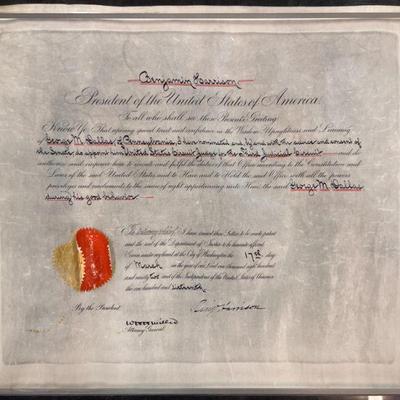 Benjamin Harrison
President of the United States of America.
To all who shall see these Presents, Greeting:
Know Ye, That reposing special trust and confidence in the Wisdom, Uprightness, and Learning
George M. Dallas of Pennsylvania, I have nominated, and, by and with the advice and consent of
the Senate, do appoint him United States Circuit Judge for the Third Judicial Circuit and do
authorize and empower him to execute and fulfil the duties of that Office according to the Constitution and
Laws of the said United States, and to Have and to Hold the said Office with all the powers,
privileges and emoluments to the same of right appertaining unto Him, the said George M. Dallas
during his good behavior.
In testimony whereof, I have caused these Letters to be made patent
and the seal of the Department of Justice to be hereunto affixed.
Given under my hand, at the City of Washington, the 17th day
of March in the year of our Lord one thousand eight hundred
and ninety two and of the Independence of the United States of America
the one hundred and sixteenth.
By the President: Benj Harrison
Attorney General.